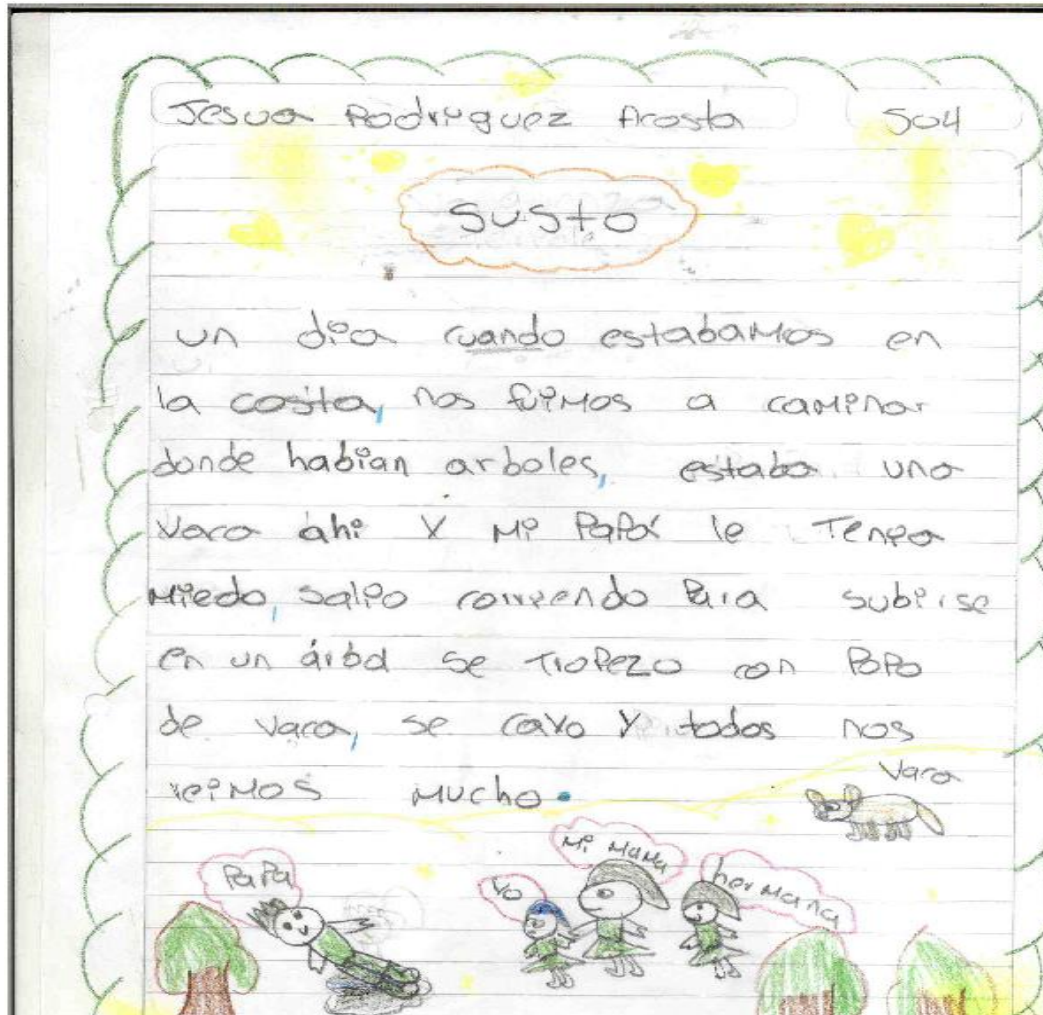 Jesua Rodriguez Acosta 504
SUSTO
un dia cuando estabamos en
la cosita, nos fuimos a caminar
donde habian arboles, estaba una
vaca ahi y mi Papá le Tenia
miedo, salio corriendo Para subirse
en un árbol se Tropezo con PoPo
de vaca, se cayo y todos nos
reimos mucho.
Vaca
Mi mama
PaPa
Yo
hermana